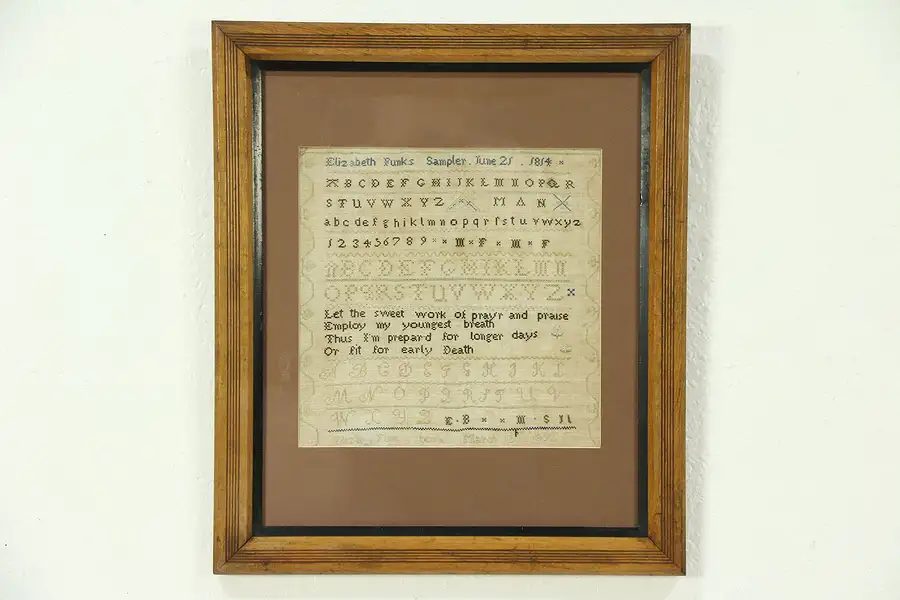 Elizabeth Funks Sampler. June 21. 1814 ×
A B C D E F G H I J K L M N O P Q R
S T U V W X Y Z M A N
a b c d e f g h i k l m n o p q r ſ s t u v w x y z
1 2 3 4 5 6 7 8 9 × × M × F × M × F
A B C D E F G H I K L M N
O P Q R S T U V W X Y Z ×
Let the sweet work of pray'r and praise
Employ my youngest breath
Thus I'm prepar'd for longer days
Or fit for early Death
A B C D E F G H I K L
M N O P Q R S T U V
W X Y Z E · B × × M · S
born March